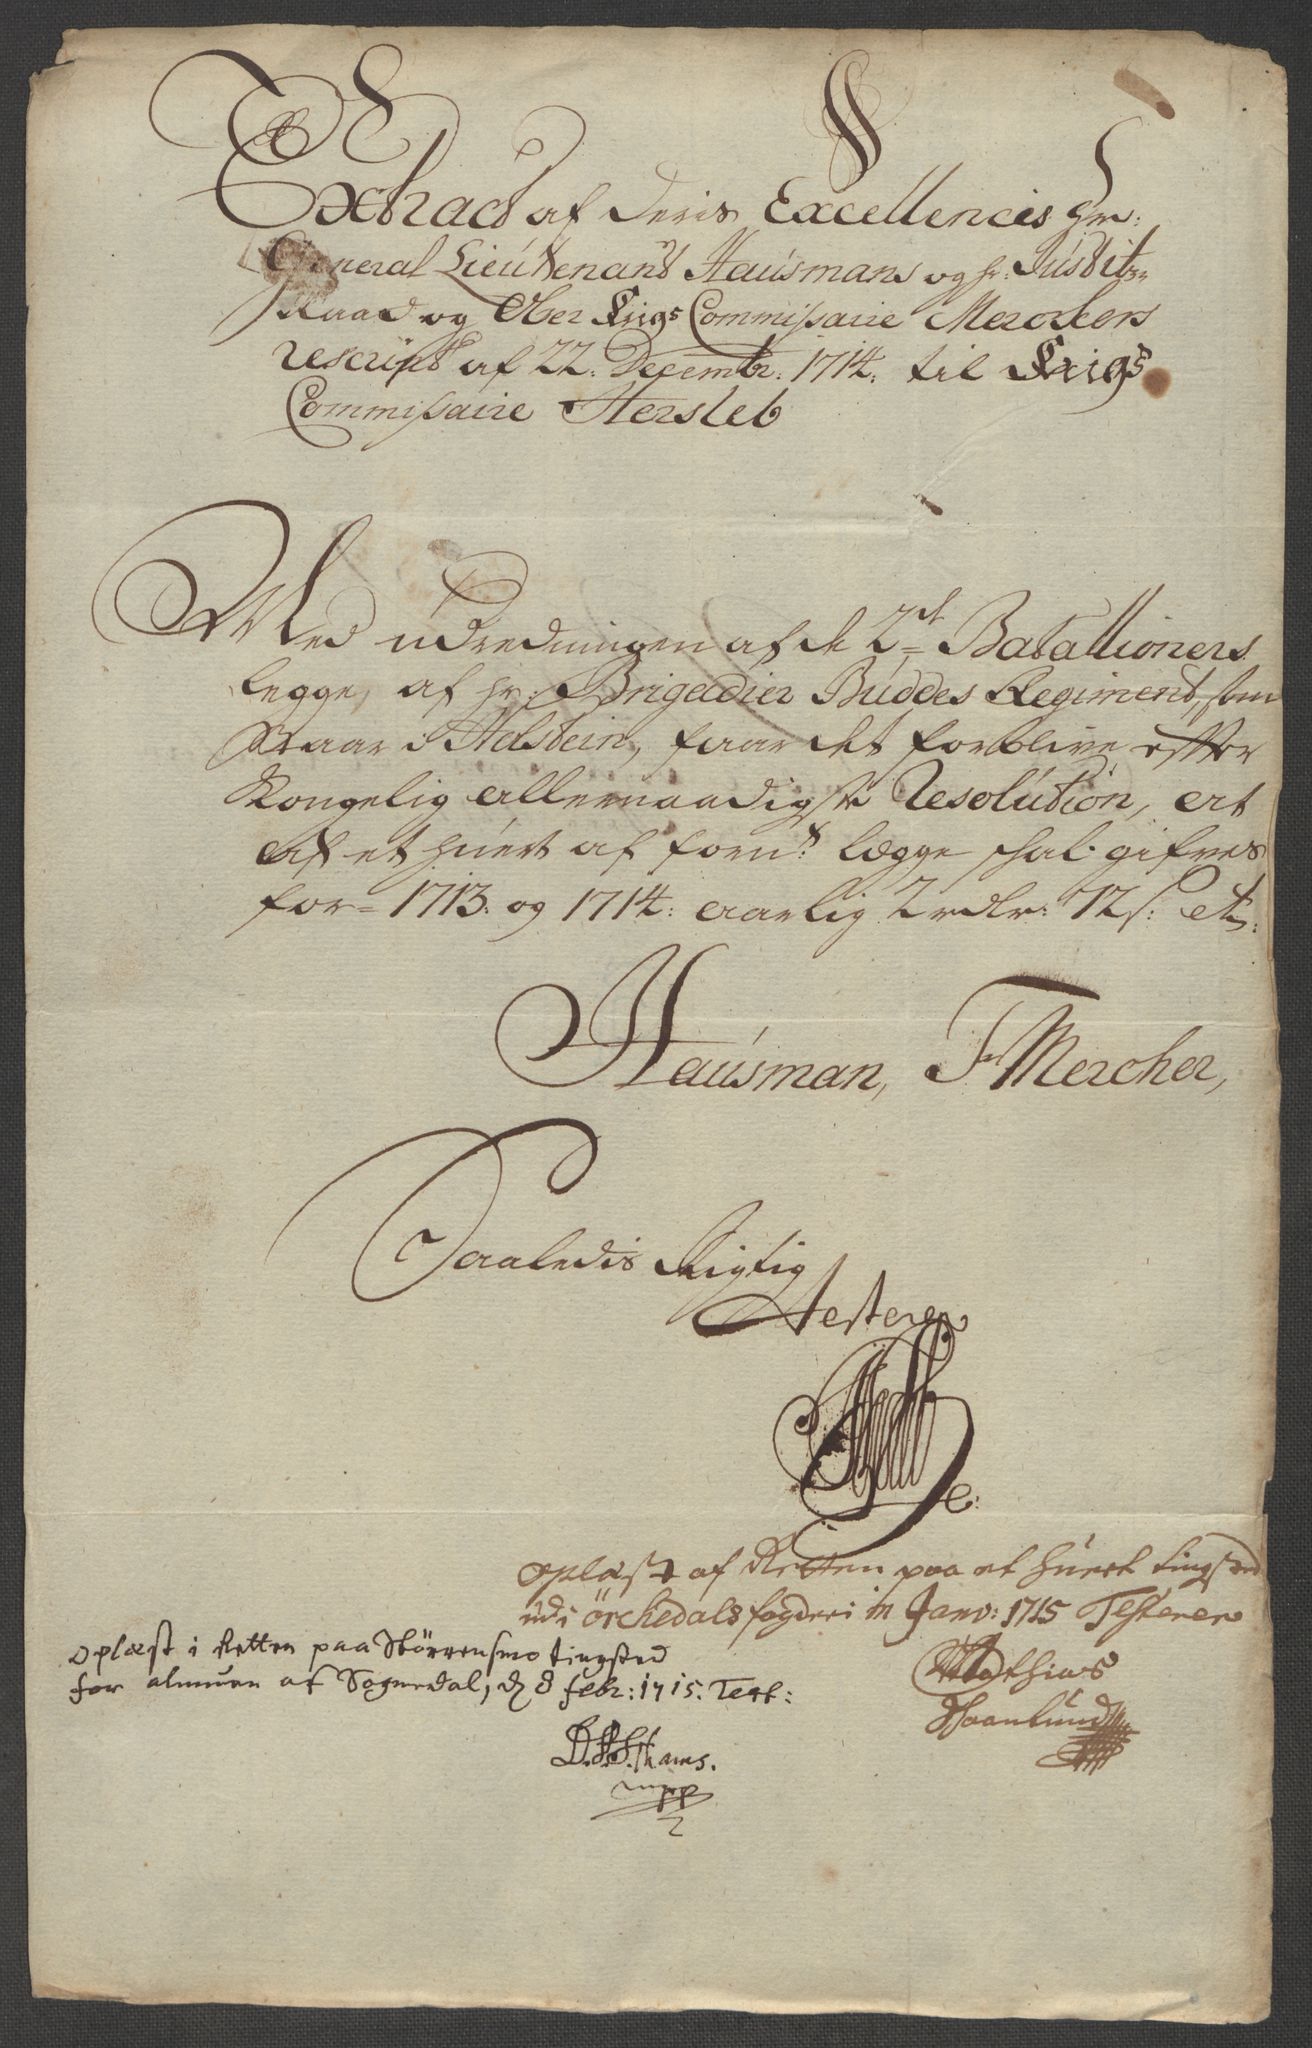 Extract af Deris Excellencis Hr:
General Lieutenant Hausmans og hr: Justitz
Raad og Ober Krigs Commissaire Merckers
rescript af 22. Decembr: 1714: til Krigs
Commissaire Hersleb
Med udredningen af de 2de Batallioners
legge, af hr: Brigadier Buddes Regiment, som
staar i Holstein, faar det forblive efter
Kongelig allernaadigste Resolution, at
af et huert af fornt lægge skal gifves
for 1713: og 1714: aarlig 2 rdlr: 72 s: etc:
Hausman, F Mercher,
Saaledis Rigtig
Testerer
oplæst af Retten paa et huert tingsted
udi örchedals fogderi in Janv: 1715 Testerer
Mathias
oplæst i Retten paa Störrensmo tingsted
for almuen af Sognedal, d 8 febr: 1715. Test:
mpp